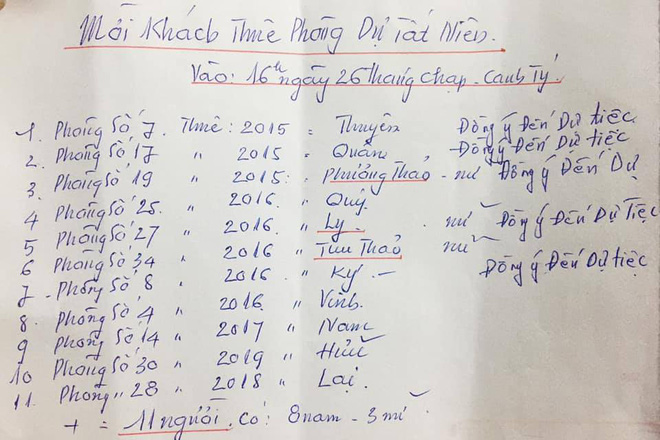 Mời Khách Thuê Phòng Dự Tất Niên.
Vào: 16h ngày 26 Tháng Chạp - Canh Tý.
1. Phòng Số 7. Thuê: 2015 = Thuyên Đồng ý Đến Dự tiệc
2. Phòng Số 17 " 2015 = Quân Đồng ý Đến Dự tiệc
3. Phòng Số 19 " 2015: Phương Thảo - nữ Đồng ý Đến Dự
4 Phòng Số 25. " 2016. " Quý.
5 Phòng Số 27 " 2016. " Ly. nữ Đồng ý Đến Dự Tiệc
6 Phòng Số 34 " 2016 " Thu Thảo nữ
7 - Phòng Số 8 " 2016 " Ký. - Đồng ý Đến Dự tiệc
8. Phòng Số 4 " 2016 " Vinh.
9 Phòng Số 14 " 2017 " Nam
10 Phòng Số 30 " 2019 " Hữu
11. Phòng " 28 " 2018 " Lai.
+ = 11 người. Có: 8 nam - 3 nữ.